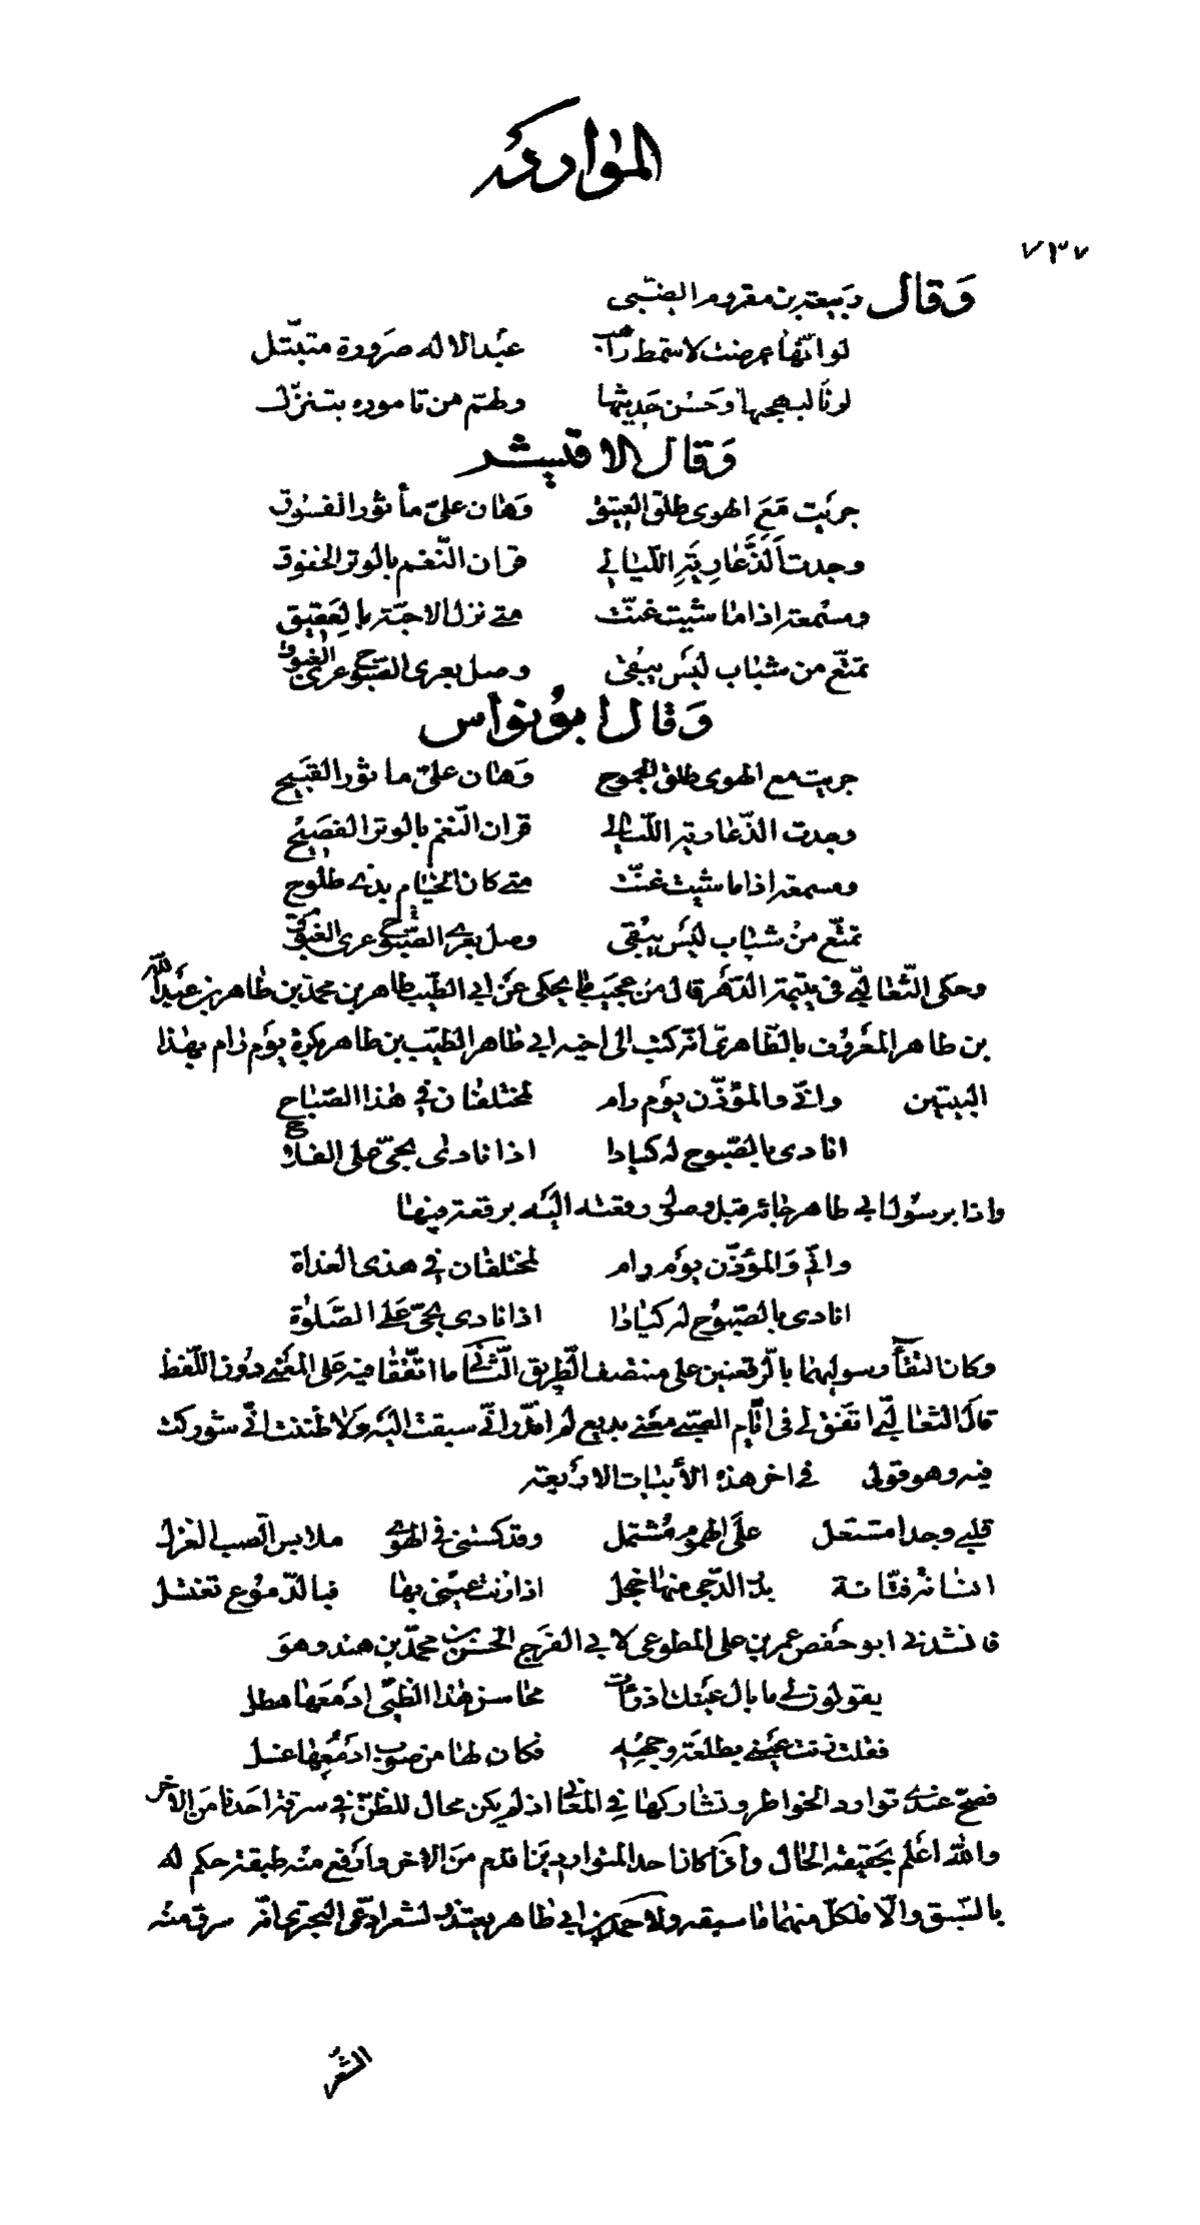 المواردة
٧٣٧
وَقال ربيعة بن مقروم الضبّبى
لو انّها عرضت لاشمط راهب عبد الاله صرورة متبتّل
لرنا لبهجتها وحسن حديثها ولهمّ من تاموره بتنزّل
وَقال الاقيشر
جريت مَعَ الهوى طلق العتيق وَهان علىّ مأثور الفسوق
وجدت اَلذّ عارِيَةِ اللّيالي قران النّغم بالوتر الخفوق
ومسمعة اذا ما شيت غنّت متى نزل الاحبّة بالعقيق
تمتّع من شباب ليس يبقى وصل بعرى الصّبوح عرى الغبوق
وَقال ابو نواس
جريت مع الهوى طلق الجموح وَهان علىّ ماثور القبيح
وجدت الذّ عارية اللّيالي قران النّغم بالوتر الفصيح
ومسمعة اذا ما شيت غنّت متى كان الخيام بذى طلوح
تمتّع من شباب ليس يبقى وصل بعرى الصّبوح عرى الغبوق
وحكى الثّعالبىّ فى يتيمة الدّهر قال من عجيب ما يحكى عن ابى الطّيّب طاهر بن محمد بن طاهر بن عبد الله
بن طاهر المعروف بالظّاهرىّ انه كتب الى اخيه ابى طاهر الطّيّب بن طاهر بكرة يوم رام بهذا
البيتين وانّى والمؤذّن يوم رام لمختلفان فى هذا الصّباح
انادى بالصّبوح له كيادا اذا نادى بحىّ على الفلاح
واذا برسول ابى طاهر قبل وصلى رقعته اليه برقعة فيها
وانّى وَالمؤذّن يوم رام لمختلفان فى هذى الغداة
انادى بالصّبوح له كيادا اذا نادى بحىّ عَلى الصّلوٰة
وكان التقأ رسوليهما بالرّقعتين على منتصف الطّريق ما اتّفقا فيه عَلى المعنى دون اللّفظ
قال الثعالبىّ اتفق لى فى ايّام الصّبى معنى بديع لم اقدّر انّى سبقت اليه ولا ظننت انّى شوركت
فيه وهو قولى فى اخر هذه الأبيات الاربعة
قلبى وجدا مشتعل على الهموم مشتمل وقد كستنى فى الهوى ملابس الصّب الغزل
انسانة فتّانة بدر الدّجى منها خجل اذا زنت عينى بها فبالدّموع تغتسل
فانشدنى ابو حفص عمر بن على المطوعى لابى الفرج الحسين بن محمّد بن هندو وهو
يقولون لى ما بال عينك اذ رأت محاسن هذا الظّبى ادمعها هطل
فقلت زنت عينى بطلعة وجهه فكان لها من صوب ادمعها غسل
فصحّ عندى توارد الخواطر وتشاركها فى المعانى اذ لم يكن محال للظنّ فى سرقة احدنا من الاخر
والله اعلم بحقيقة الحال واذا كان احد المتواردين اقدم من الاخر وارفع منه طبقة حكم له
بالسّبق والّا فلكلّ منهما ما سبقه ولاحمد بن ابى طاهر يعتذر لشعر ادّعى البحترى انّه سرق منه
الشعر